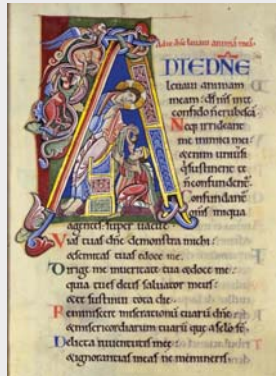 Ad te dñe leuaui animã meã.
A DTEDNE
leuaui animam
meam: ds ms in te
confido n erubescã
Neq; irrideant
me inimici mei:
etenim uniusi
q sustinent te
n confundent.
Confundant
oms iniqua
agentes: super uacue.
Vias tuas dñe demonstra michi:
& semitas tuas edoce me.
Dirige me in ueritate tua & doce me:
quia tu es deus saluator meus
& te sustinui tota die.
Reminiscere miserationũ tuarũ dñe:
& misericordiarum tuarũ que a sclo st.
Delicta iuuentutis mee:
& ignorantias meas ne memineris.